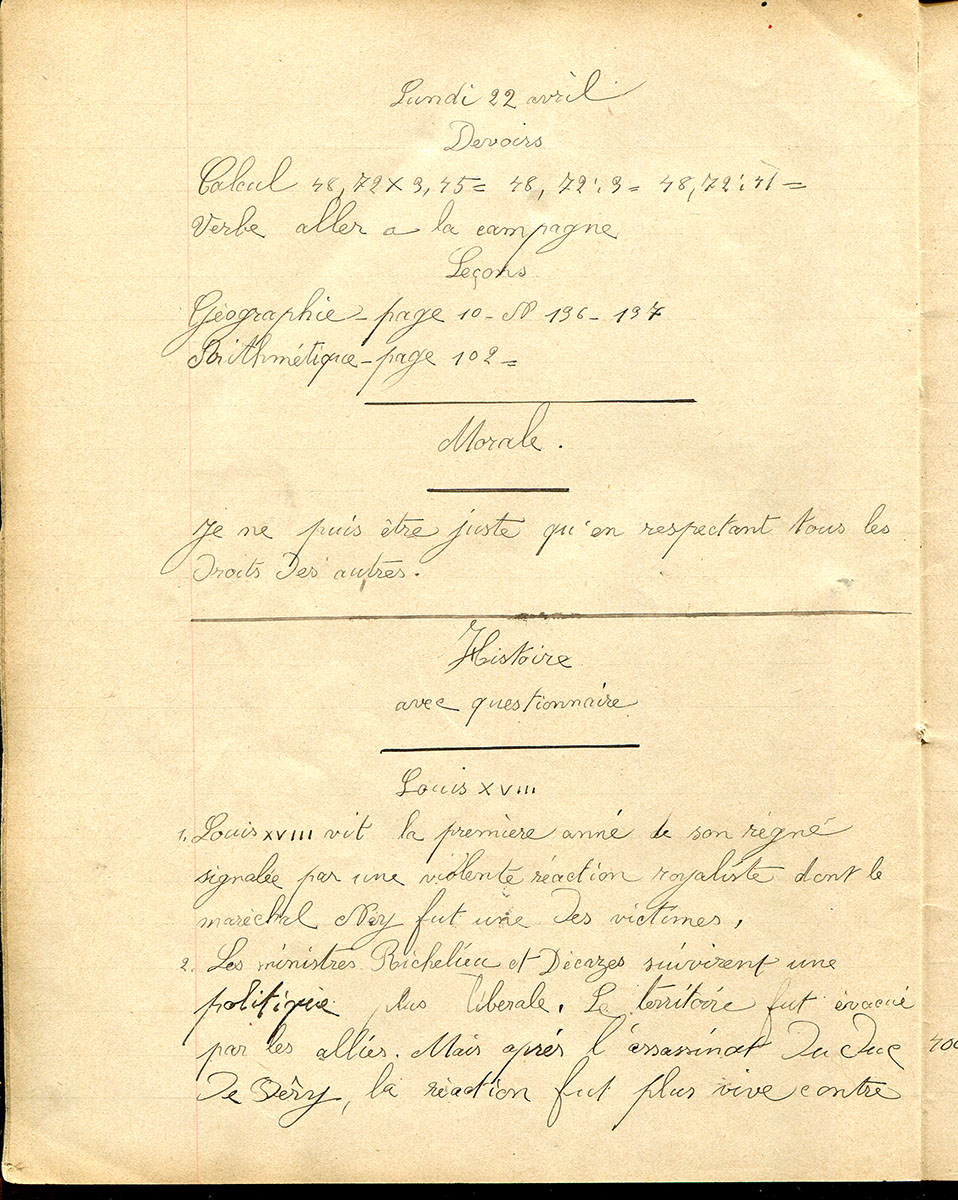 Lundi 22 avril
Devoirs
Calcul 48,72 x 9,45 = 48,72 : 9 = 48,72 : 41 =
Verbe aller a la campagne
Leçons
Géographie - page 10 - N 196 - 197
Arithmétique - page 102 =
Morale.
Je ne puis être juste qu'en respectant tous les
Droits Des autres.
Histoire
avec questionnaire
Louis XVIII
1. Louis XVIII vit la première anné de son régné
signalée par une violente réaction royaliste dont le
maréchal Ney fut une Des victimes,
2. Les ministres Richelieu et Décazes suivirent une
politique plus liberale. Le territoire fut évacué
par les alliés. Mais aprés l'assassinat Du Duc
De Béry, la réaction fut plus vive contre
400